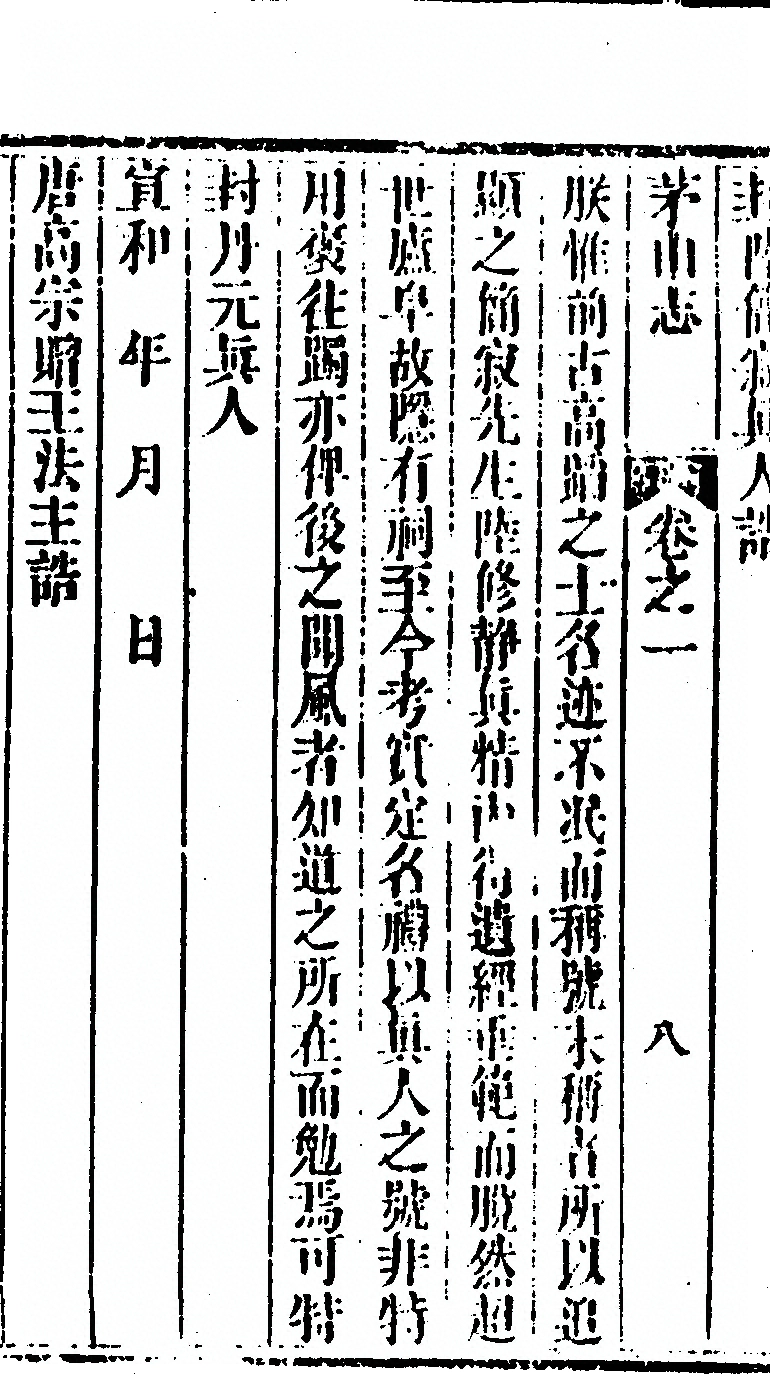 封陸簡寂眞人誥
茅山志 卷之一 八
朕惟前古高蹈之士名迹不泯而稱號未稱者所以追
顯之簡寂先生陸修静眞精内行遺經垂範而脫然超
世廬阜故隱有祠至今考實定名禪以眞人之號非特
用褒往躅亦俾後之聞風者知道之所在而勉焉可特
封丹元眞人
宣和 年 月 日
唐高宗昭王法主誥